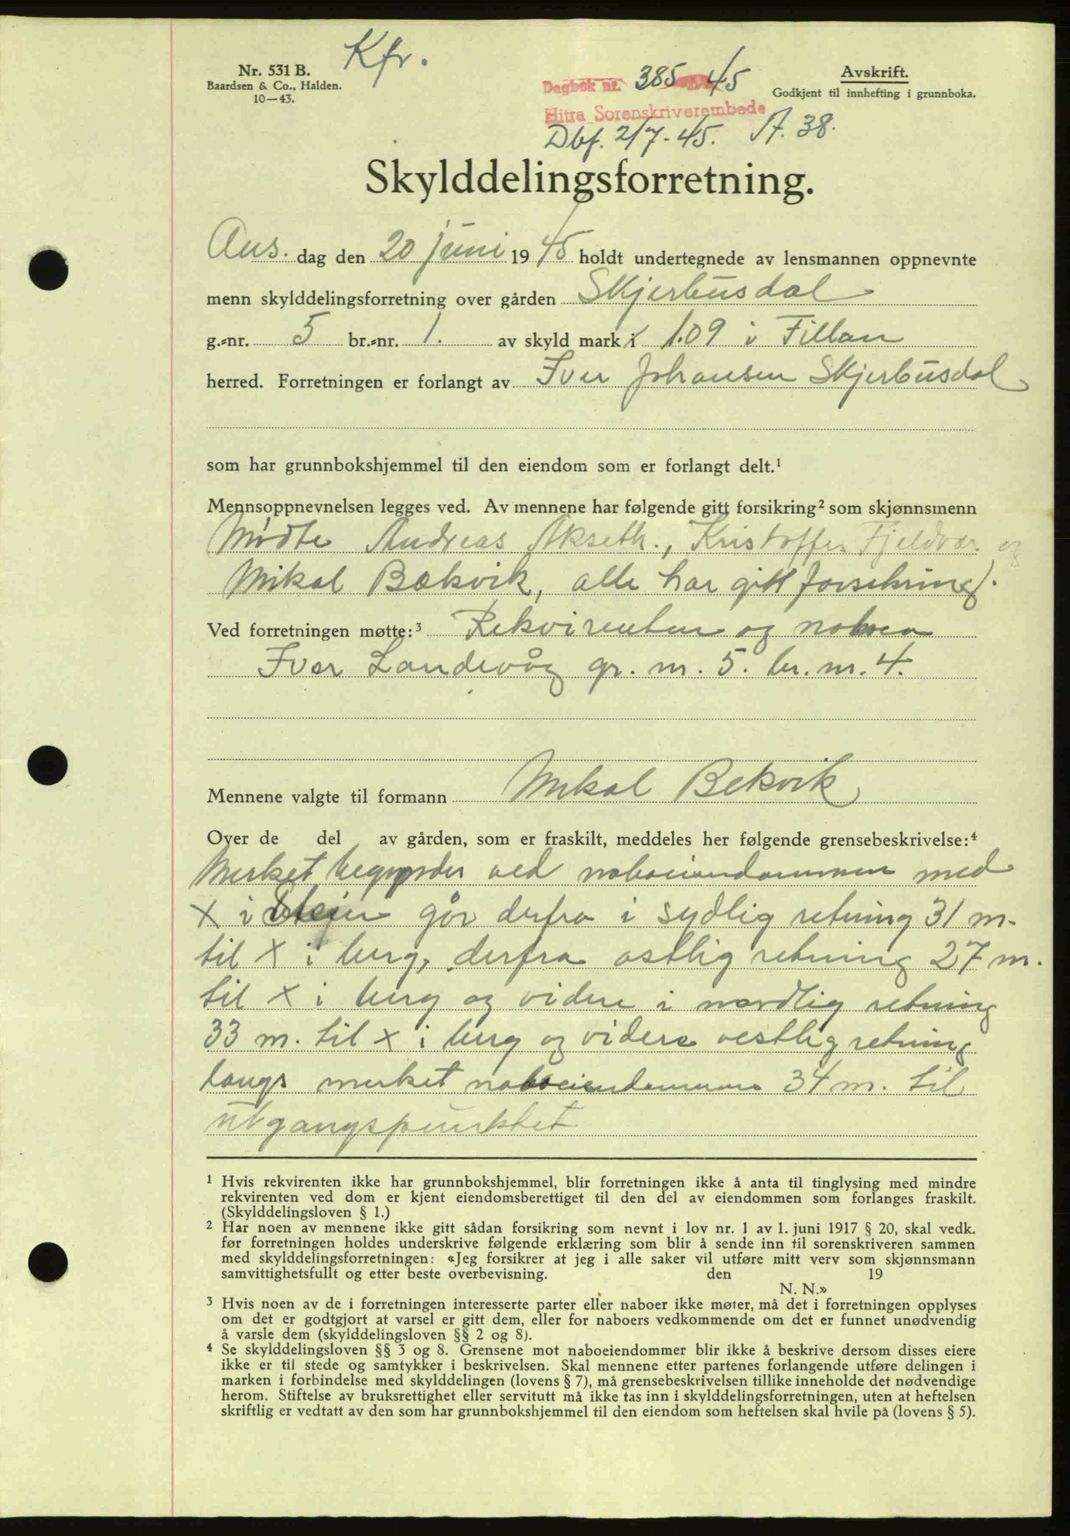 Kfr.
Nr. 531 B.
Baardsen & Co., Halden.
10—43.
Dagbok nr. 385 45
Hitra Sorenskriverembede
Dbf. 2/7-45. A. 38.
Avskrift.
Godkjent til innhefting i grunnboka.
Skylddelingsforretning.
Ons. dag den 20 juni 19 45 holdt undertegnede av lensmannen oppnevnte
menn skylddelingsforretning over gården Skjerbusdal
g.-nr. 5 br.-nr. 1. av skyld mark 1.09 i Fillan
herred. Forretningen er forlangt av Iver Johansen Skjerbusdal
som har grunnbokshjemmel til den eiendom som er forlangt delt.¹
Mennsoppnevnelsen legges ved. Av mennene har følgende gitt forsikring² som skjønnsmenn
Møtte Andreas Akseth., Kristoffer Fjeldvær og
Mikal Bækvik, alle har gitt forsikring.
Ved forretningen møtte:³ Rekvirenten og naboen
Iver Landevåg gr. nr. 5. br. nr. 4.
Mennene valgte til formann Mikal Bekvik
Over de del av gården, som er fraskilt, meddeles her følgende grensebeskrivelse:⁴
Merket begynder ved naboeiendommen med
X i Stein går derfra i sydlig retning 31 m.
til X i berg, derfra østlig retning 27 m.
til X i berg og videre i nordlig retning
33 m. til X i berg og videre vestlig retning
langs merket naboeiendommen 34 m. til
utgangspunktet
¹ Hvis rekvirenten ikke har grunnbokshjemmel, blir forretningen ikke å anta til tinglysing med mindre
rekvirenten ved dom er kjent eiendomsberettiget til den del av eiendommen som forlanges fraskilt.
(Skylddelingsloven § 1.)
² Har noen av mennene ikke gitt sådan forsikring som nevnt i lov nr. 1 av 1. juni 1917 § 20, skal vedk.
før forretningen holdes underskrive følgende erklæring som blir å sende inn til sorenskriveren sammen
med skylddelingsforretningen: «Jeg forsikrer at jeg i alle saker vil utføre mitt verv som skjønnsmann
samvittighetsfullt og etter beste overbevisning. den 19
N. N.»
³ Hvis noen av de i forretningen interesserte parter eller naboer ikke møter, må det i forretningen opplyses
om det er godtgjort at varsel er gitt dem, eller for naboers vedkommende om det er funnet unødvendig
å varsle dem (skylddelingsloven §§ 2 og 8).
⁴ Se skylddelingsloven §§ 3 og 8. Grensene mot naboeiendommer blir ikke å beskrive dersom disses eiere
ikke er til stede og samtykker i beskrivelsen. Skal mennene etter partenes forlangende utføre delingen i
marken i forbindelse med skylddelingen (lovens § 7), må grensebeskrivelsen tillike inneholde det nødvendige
herom. Stiftelse av bruksrettighet eller servitutt må ikke tas inn i skylddelingsforretningen, uten at heftelsen
skriftlig er vedtatt av den som har grunnbokshjemmel til den eiendom som heftelsen skal hvile på (lovens § 5).